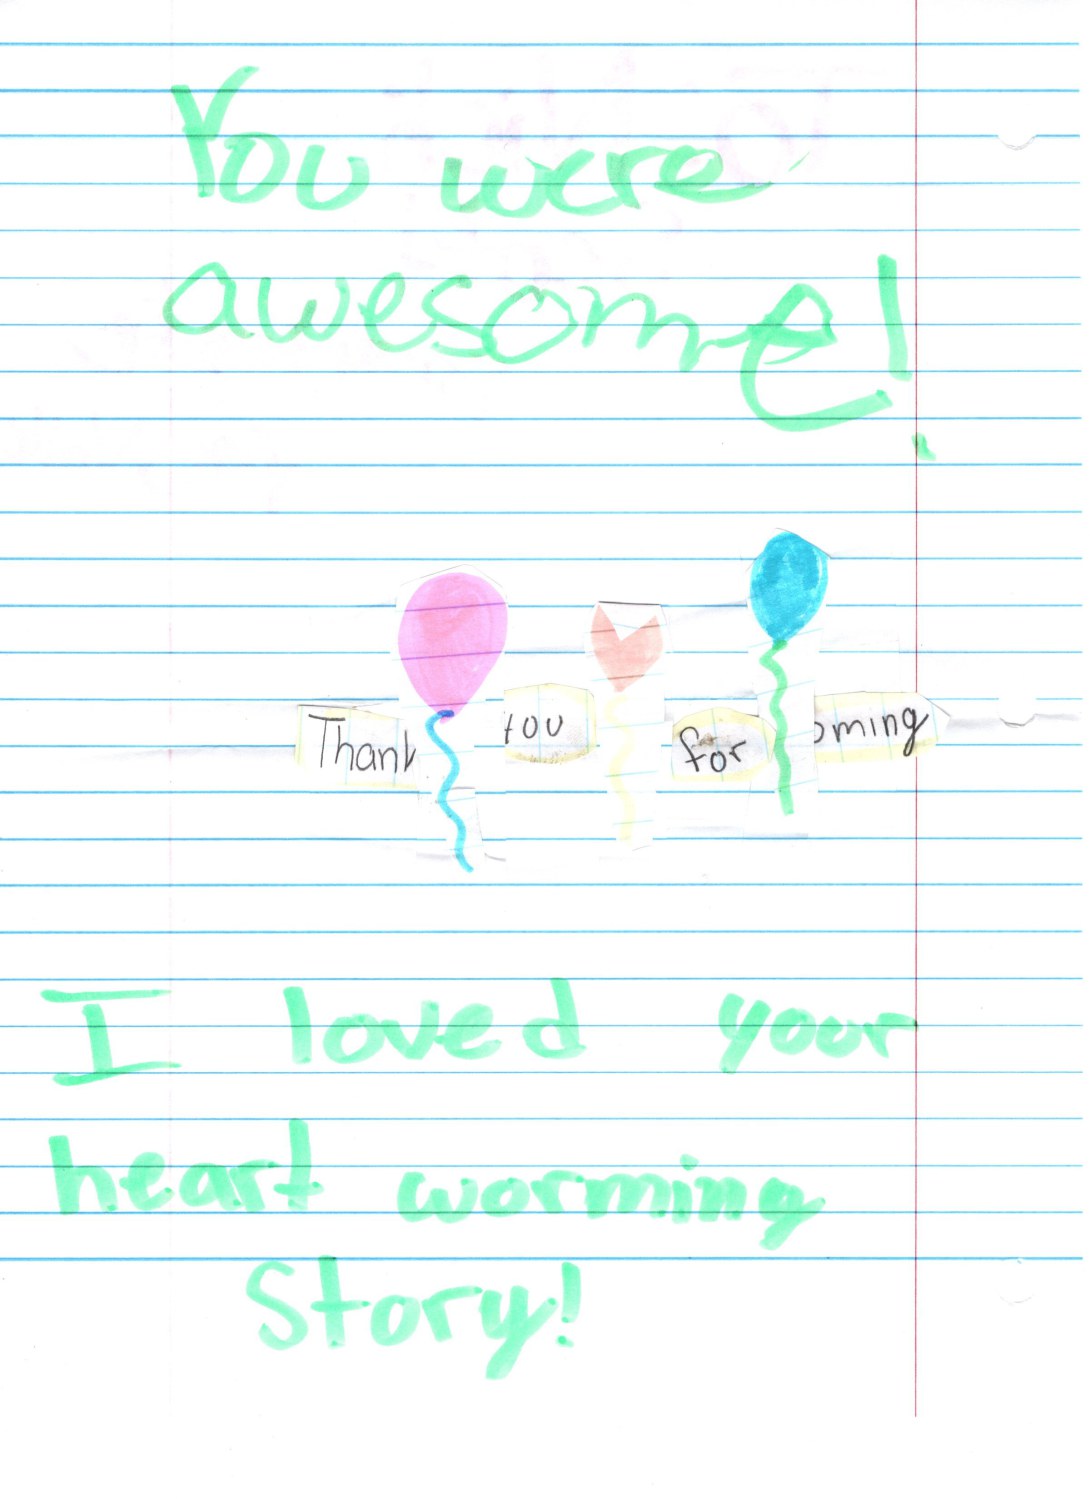 You were
awesome!
Thank you for coming
I loved your
heart worming
Story!